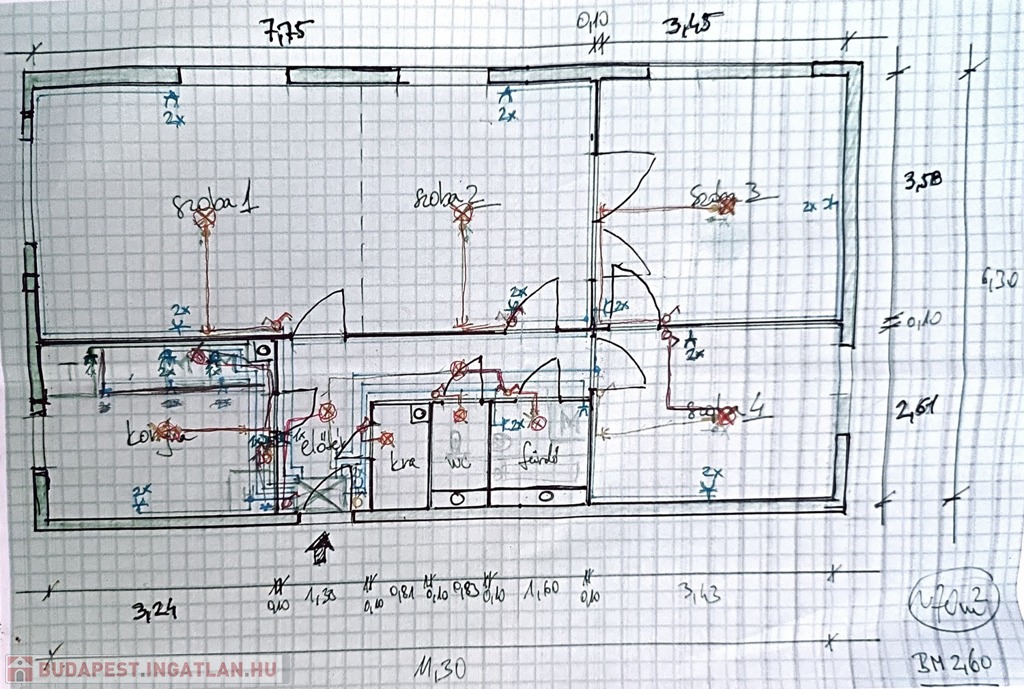 7,75
0,10
3,45
A
2x
A
2x
szoba 1
szoba 2
szoba 3
2x
3,58
6,30
2x
2x
2x
0,10
A
2x
konyha
1x
előtér
kra
wc
fürdő
K2x
M
szoba 4
2,61
2x
2x
3,24
0,10
1,38
0,10
0,81
0,10
0,83
0,10
1,60
0,10
3,43
11,30
BM 2,60
BUDAPEST.INGATLAN.HU